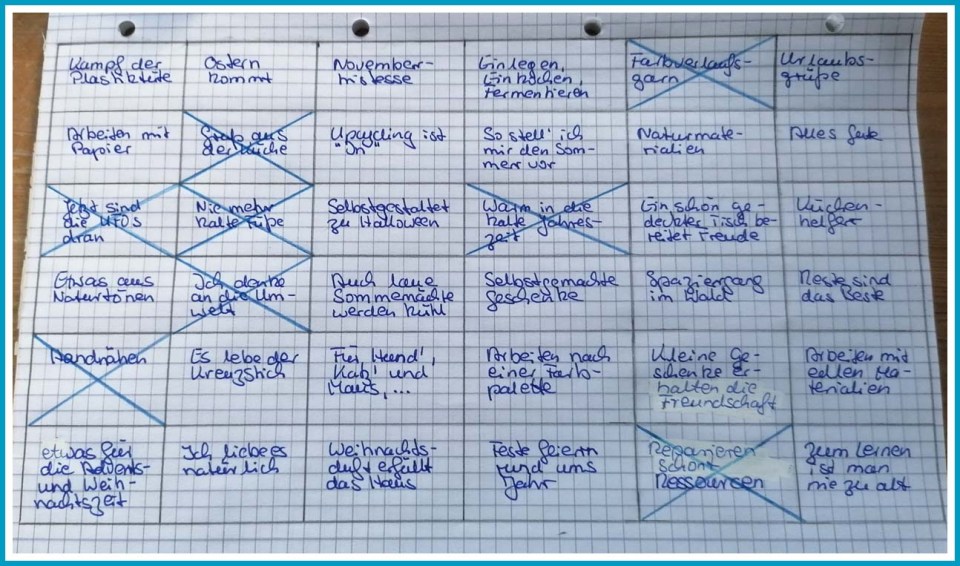 Kampf der
Plastiktüte
Ostern
kommt
November-
tristesse
Einlegen,
Einkochen,
Fermentieren
Farbverlaufs-
garn
Urlaubs-
grüße
Arbeiten mit
Papier
Stab aus
der Küche
Upcycling ist
"In"
So stell' ich
mir den Som-
mer vor
Naturmate-
rialien
Alles
Jetzt sind
die UFOs
dran
Nie mehr
kalte Füße
Selbstgestaltet
zu Halloween
Warm in die
kalte Jahres-
zeit
Ein schön ge-
deckter Tisch be-
reitet Freude
Küchen-
helfer
Etwas aus
Naturtönen
Ich denke
an die Um-
welt
Auch laue
Sommernächte
werden kühl
Selbstgemachte
Geschenke
Spaziergang
im Wald
Reste sind
das Beste
Handnähen
Es lebe der
Kreuzstich
Für Hund',
Katz' und
Maus, ...
Arbeiten nach
einer Farb-
palette
Kleine Ge-
schenke er-
halten die
Freundschaft
Arbeiten mit
edlen Ma-
terialien
etwas für
die Advents-
und Weih-
nachtszeit
Ich liebe es
natürlich
Weihnachts-
duft erfüllt
das Haus
Feste feiern
rund ums
Jahr
Reparieren
schont
Ressourcen
Zum Lernen
ist man
nie zu alt